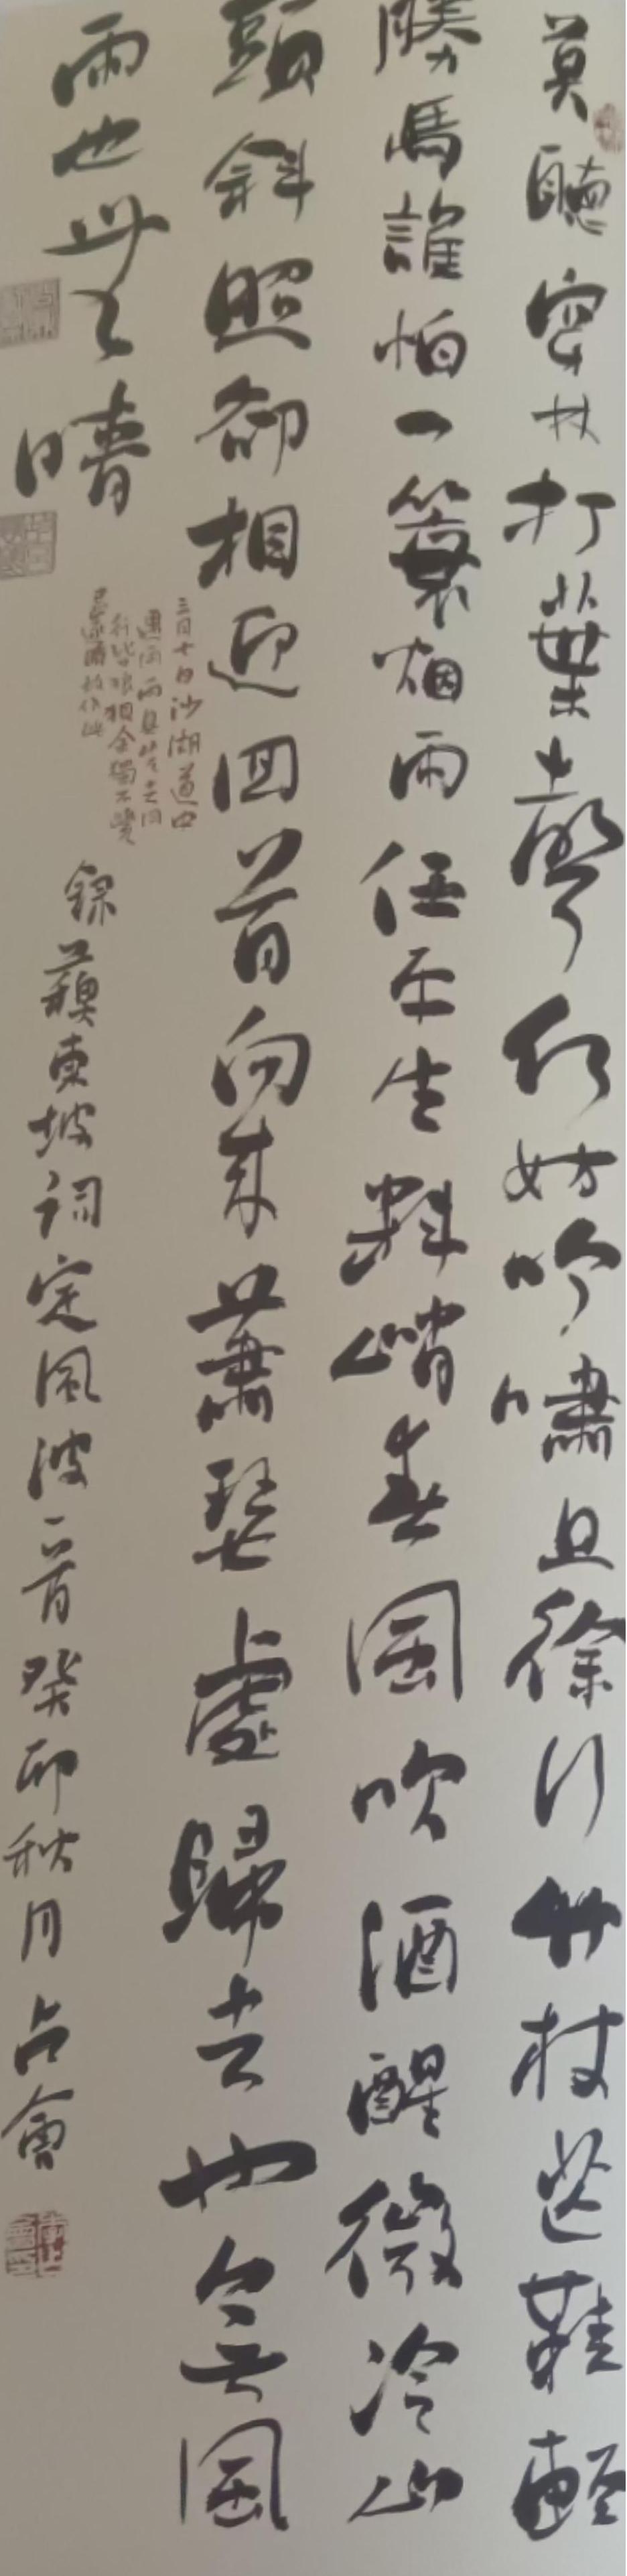 莫聽穿林打葉聲何妨吟嘯且徐行竹杖芒鞋輕
勝馬誰怕一蓑烟雨任平生料峭春風吹酒醒微冷山
頭斜照卻相迎回首向來蕭瑟處歸去也無風
雨也無晴
三月七日沙湖道中
遇雨雨具先去同
行皆狼狽余獨不覺
已遂晴故作此
錄蘇東坡詞定風波一首癸卯秋月占會